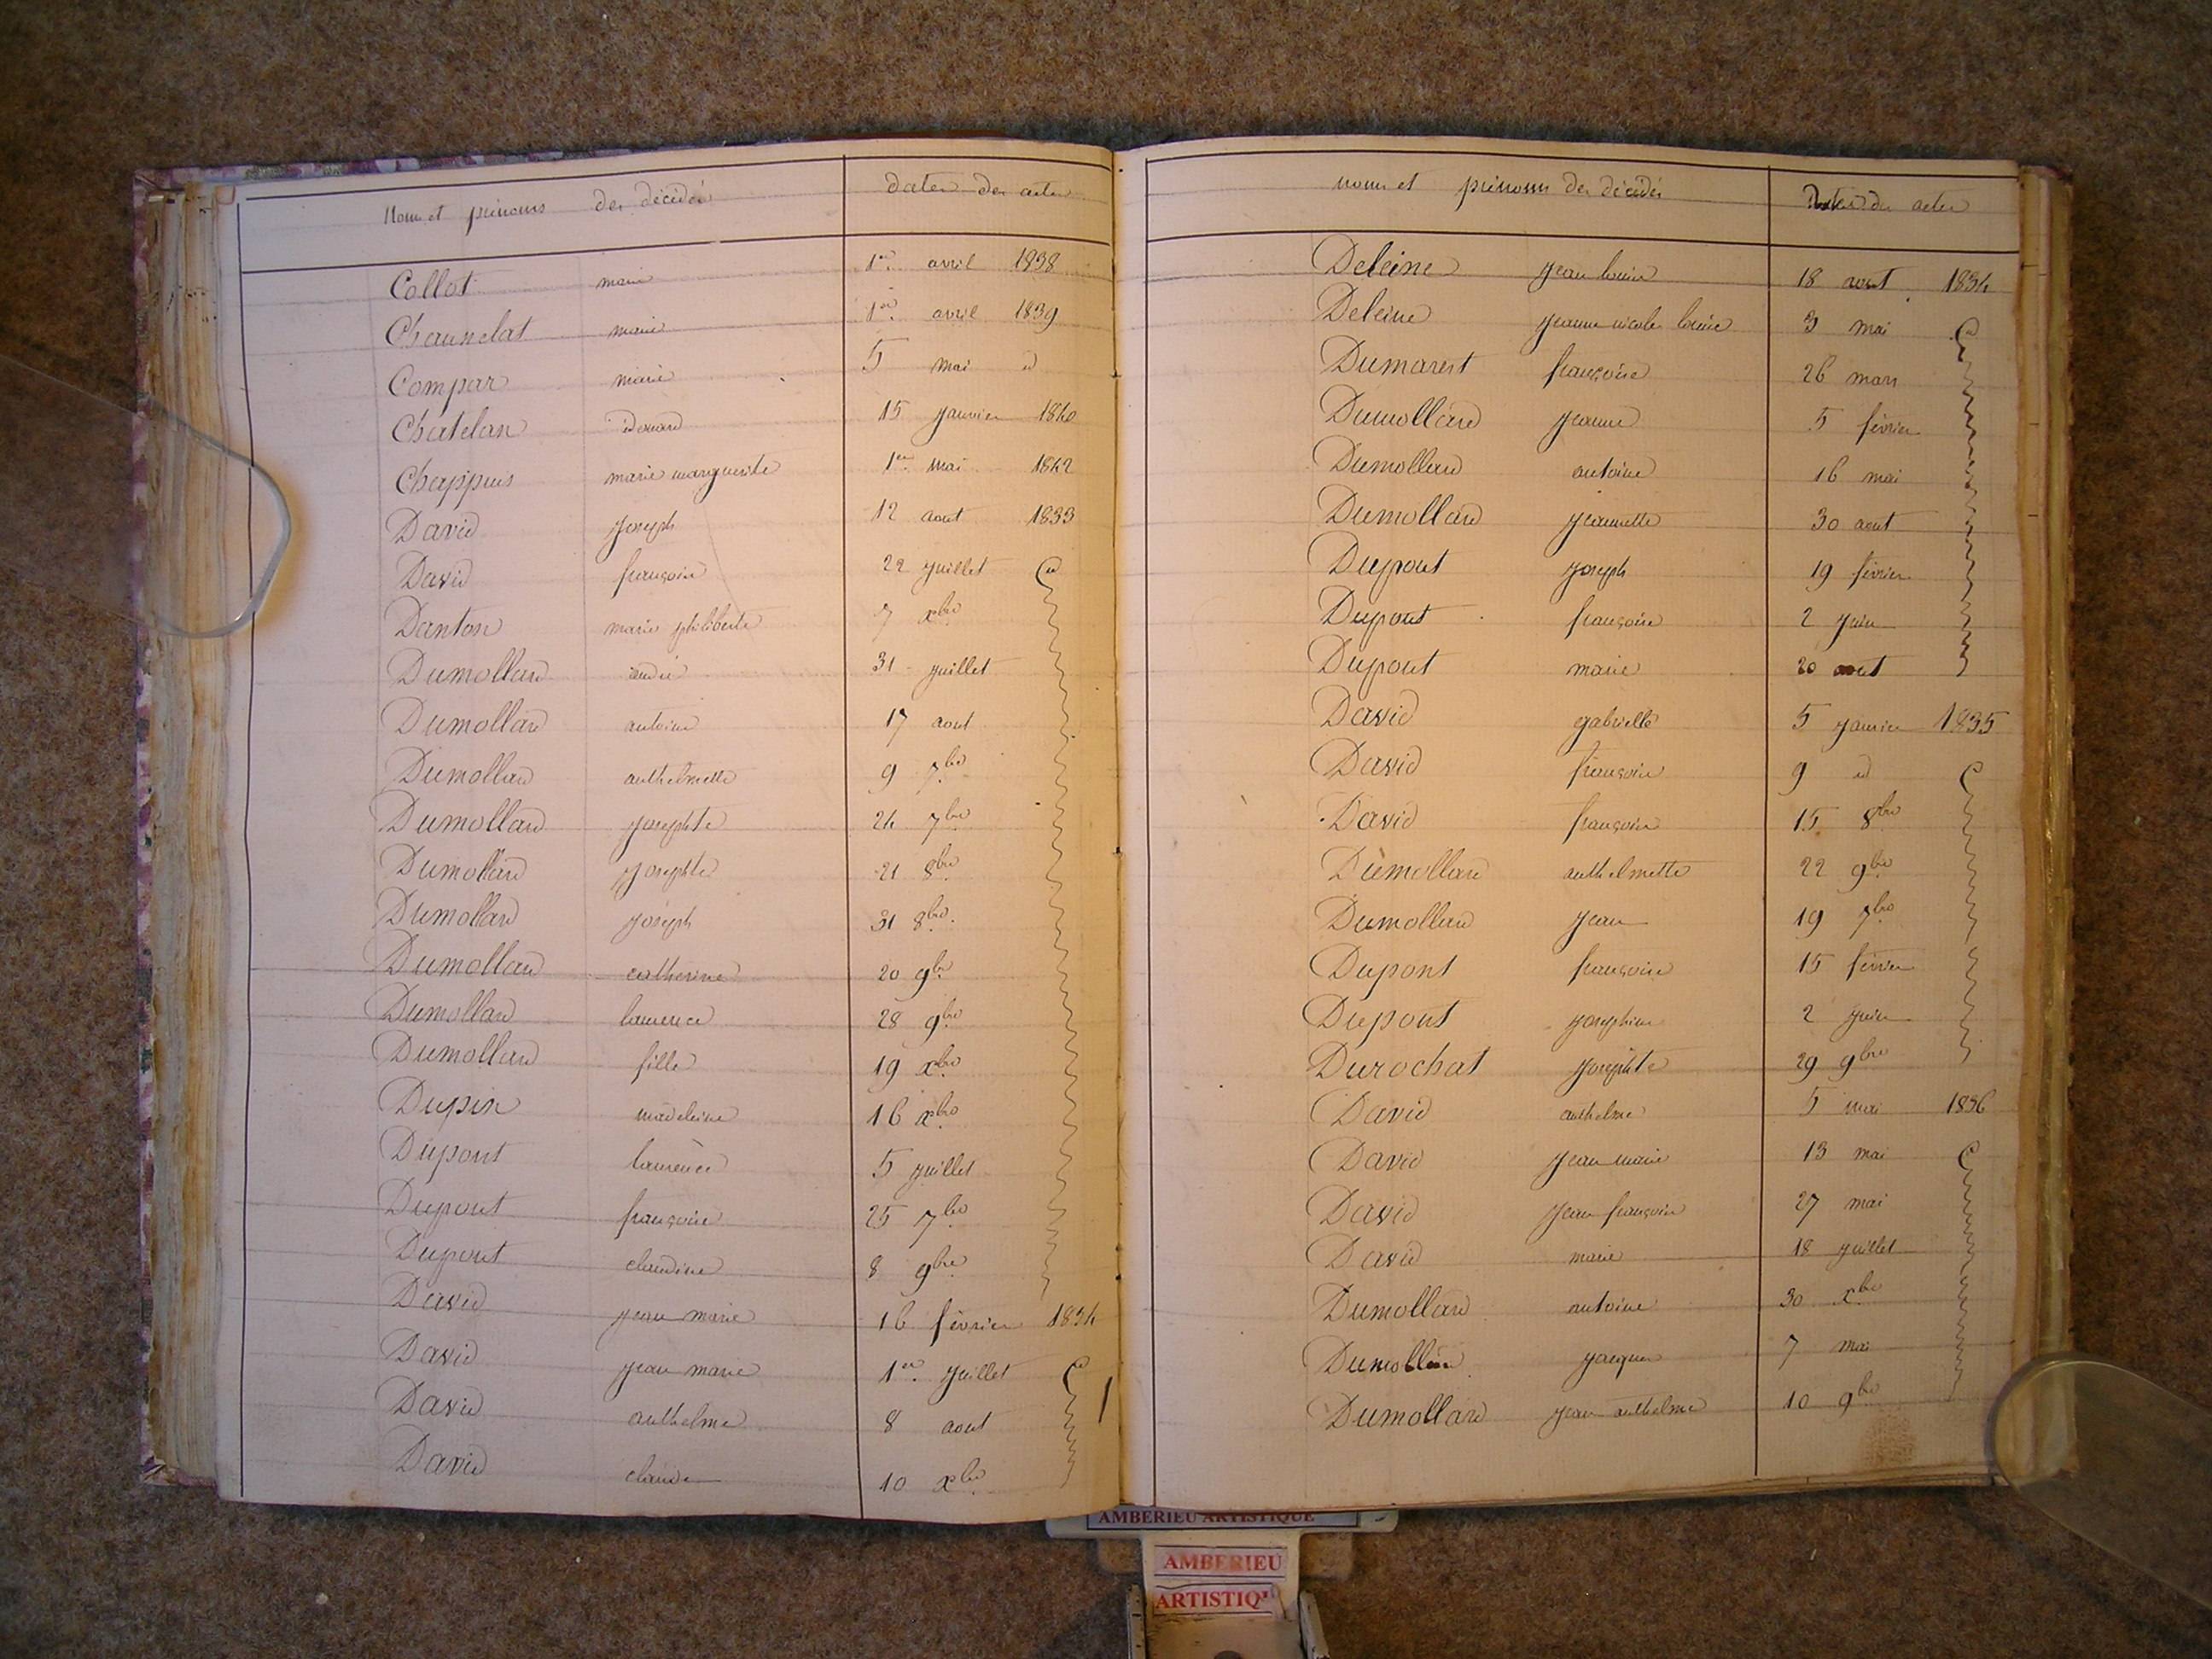 Noms et prénoms des décédés dates des actes
Collot marie 1er avril 1838
Channelat marie 1er avril 1839
Compar marie 5 mai id
Chatelan édouard 15 janvier 1840
Chappuis marie marguerite 1er mai 1842
David joseph 12 aout 1833
David françois 22 juillet
Danton marie philiberte 7 xbre
Dumollard andré 31 juillet
Dumollard antoine 17 aout
Dumollard anthelmette 9 7bre
Dumollard josephte 24 7bre
Dumollard josephte 21 8bre
Dumollard joseph 31 8bre
Dumollard catherine 20 9bre
Dumollard laurence 28 9bre
Dumollard fille 19 xbre
Dupin madeleine 16 xbre
Dupont laurence 5 juillet
Dupont françoise 25 7bre
Dupont claudine 8 9bre
David jean marie 16 février 1834
David jean marie 1er juillet
David anthelme 8 aout
David claude 10 xbre
noms et prénoms des décédés Dates des actes
Deleine jean louis 18 aout 1834
Deleine jeanne nicole louise 3 mai
Dumarest françoise 26 mars
Dumollard jeanne 5 février
Dumollard antoine 16 mai
Dumollard jeannette 30 aout
Dupont joseph 19 février
Dupont françoise 2 juin
Dupont marie 20 aout
David gabrielle 5 janvier 1835
David françois 9 id
David françois 15 8bre
Dumollard anthelmette 22 9bre
Dumollard jean 19 7bre
Dupont françoise 15 février
Dupont josephine 2 juin
Durochat josephte 29 9bre
David anthelme 5 mai 1836
David jean marie 13 mai
David jean françois 27 mai
David marie 18 juillet
Dumollard antoine 30 xbre
Dumollard jacques 7 mai
Dumollard jean anthelme 10 9bre
AMBERIEU ARTISTIQUE
AMBERIEU
ARTISTIQ